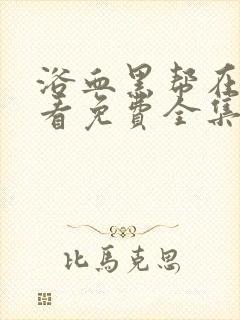 浴血黑帮在
看免费全集
比馬克思